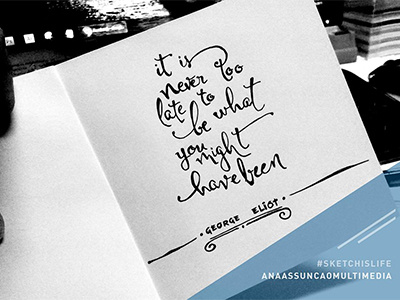 it is
never too
late to
be what
you
might
have been
GEORGE ELIOT
#SKETCHISLIFE
ANAASSUNCAOMULTIMEDIA